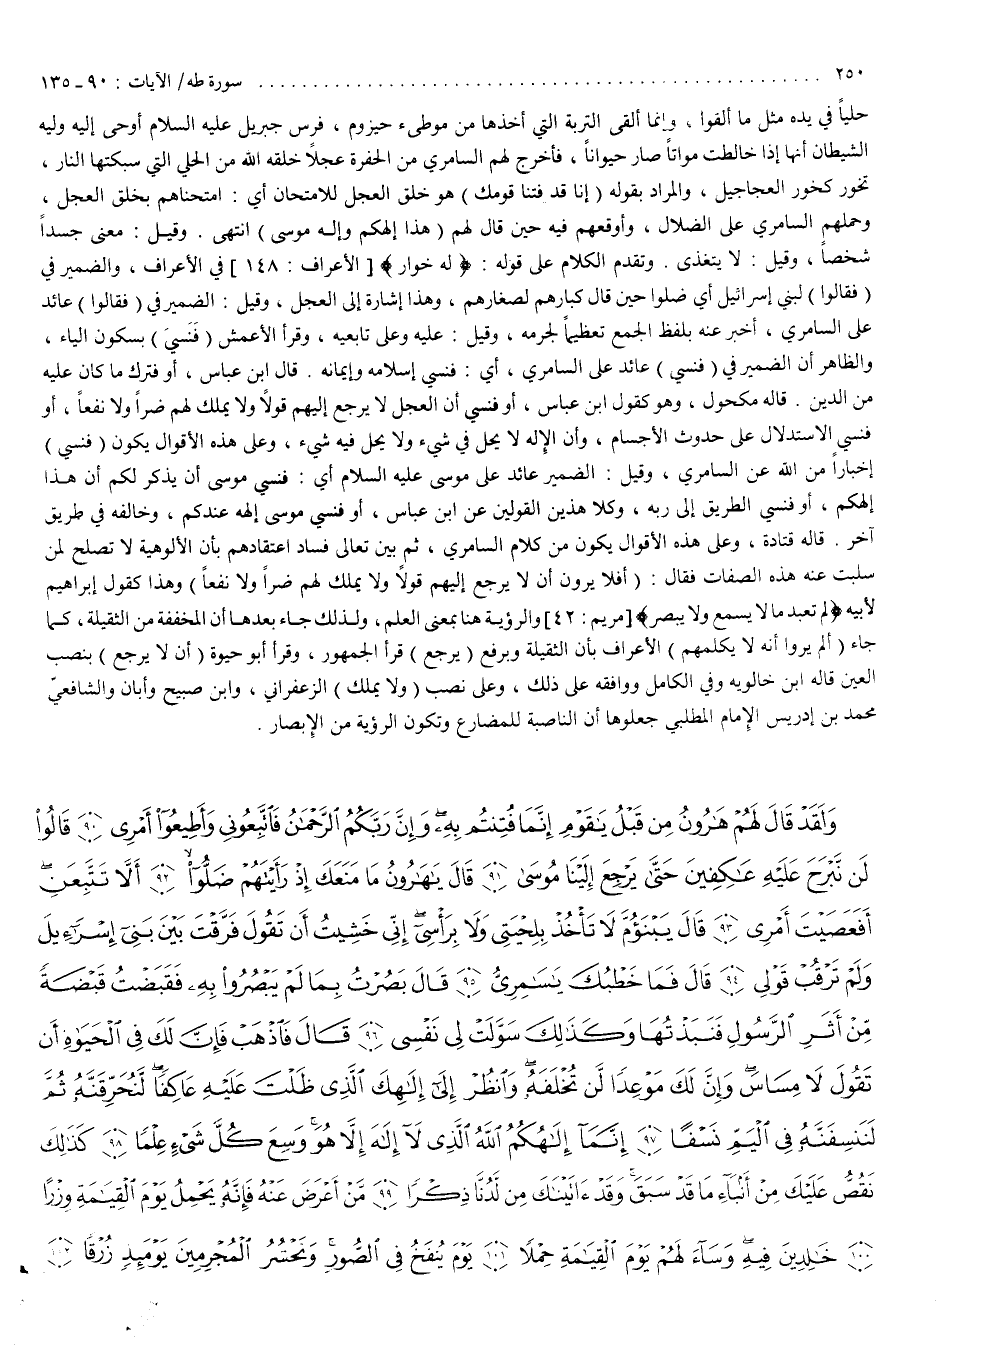 ٢٥٠ ........ سورة طه/ الآيات : ٩٠ - ١٣٥
حلياً في يده مثل ما ألقوا ، وإنما ألقى التربة التي أخذها من موطىء حيزوم ، فرس جبريل عليه السلام أوحى إليه وليه
الشيطان أنها إذا خالطت مواتاً صار حيواناً ، فأخرج لهم السامري من الحفرة عجلًا خلقه الله من الحلي التي سبكتها النار ،
تخور كخور العجاجيل ، والمراد بقوله ( إنا قد فتنا قومك ) هو خلق العجل للامتحان أي : امتحناهم بخلق العجل ،
وحملهم السامري على الضلال ، وأوقعهم فيه حين قال لهم ( هذا إلهكم وإلـه موسى ) انتهى . وقيـل : معنى جسداً
شخصاً ، وقيل : لا يتغذى . وتقدم الكلام على قوله : ﴿ له خوار ﴾ [ الأعراف : ١٤٨ ] في الأعراف ، والضمير في
( فقالوا ) لبني إسرائيل أي ضلوا حين قال كبارهم لصغارهم ، وهذا إشارة إلى العجل ، وقيل : الضمير في ( فقالوا ) عائد
على السامري ، أخبر عنه بلفظ الجمع تعظيماً لجرمه ، وقيل : عليه وعلى تابعيه ، وقرأ الأعمش ( فَنَسيَ ) بسكون الياء ،
والظاهر أن الضمير في ( فنسي ) عائد على السامري ، أي : فنسي إسلامه وإيمانه . قال ابن عباس ، أو فترك ما كان عليه
من الدين . قاله مكحول ، وهو كقول ابن عباس ، أو فنسي أن العجل لا يرجع إليهم قولًا ولا يملك لهم ضراً ولا نفعاً ، أو
فنسي الاستدلال على حدوث الأجسام ، وأن الإله لا يحل في شيء ولا يحل فيه شيء ، وعلى هذه الأقوال يكون ( فنسي )
إخباراً من الله عن السامري ، وقيل : الضمير عائد على موسى عليه السلام أي : فنسي موسى أن يذكر لكم أن هـذا
إلهكم ، أو فنسي الطريق إلى ربه ، وكلا هذين القولين عن ابن عباس ، أو فنسي موسى إلهه عندكم ، وخالفه في طريق
آخر . قاله قتادة ، وعلى هذه الأقوال يكون من كلام السامري ، ثم بين تعالى فساد اعتقادهم بأن الألوهية لا تصلح لمن
سلبت عنه هذه الصفات فقال : ( أفلا يرون أن لا يرجع إليهم قولًا ولا يملك لهم ضراً ولا نفعاً ) وهذا كقول إبراهيم
لأبيه ﴿لم تعبد ما لا يسمع ولا يبصر﴾ [مريم : ٤٢] والرؤيـة هنا بمعنى العلم ، ولـذلك جـاء بعدهـا أن المخففة من الثقيلة ، كـما
جاء ( ألم يروا أنه لا يكلمهم ) الأعراف بأن الثقيلة وبرفع ( يرجع ) قرأ الجمهور ، وقرأ أبو حيوة ( أن لا يرجع ) بنصب
العين قاله ابن خالويه وفي الكامل ووافقه على ذلك ، وعلى نصب ( ولا يملك ) الزعفراني ، وابن صبيح وأبان والشافعيّ
محمد بن إدريس الإمام المطلبي جعلوها أن الناصبة للمضارع وتكون الرؤية من الإبصار .
وَلَقَدْ قَالَ لَهُمْ هَٰرُونُ مِن قَبْلُ يَٰقَوْمِ إِنَّمَا فُتِنتُم بِهِۦۖ وَإِنَّ رَبَّكُمُ ٱلرَّحْمَٰنُ فَٱتَّبِعُونِى وَأَطِيعُوٓا۟ أَمْرِى ﴿٩٠﴾ قَالُوا۟
لَن نَّبْرَحَ عَلَيْهِ عَٰكِفِينَ حَتَّىٰ يَرْجِعَ إِلَيْنَا مُوسَىٰ ﴿٩١﴾ قَالَ يَٰهَٰرُونُ مَا مَنَعَكَ إِذْ رَأَيْتَهُمْ ضَلُّوٓا۟ ﴿٩٢﴾ أَلَّا تَتَّبِعَنِۖ
أَفَعَصَيْتَ أَمْرِى ﴿٩٣﴾ قَالَ يَبْنَؤُمَّ لَا تَأْخُذْ بِلِحْيَتِى وَلَا بِرَأْسِىٓۖ إِنِّى خَشِيتُ أَن تَقُولَ فَرَّقْتَ بَيْنَ بَنِىٓ إِسْرَٰٓءِيلَ
وَلَمْ تَرْقُبْ قَوْلِى ﴿٩٤﴾ قَالَ فَمَا خَطْبُكَ يَٰسَٰمِرِىُّ ﴿٩٥﴾ قَالَ بَصُرْتُ بِمَا لَمْ يَبْصُرُوا۟ بِهِۦ فَقَبَضْتُ قَبْضَةً
مِّنْ أَثَرِ ٱلرَّسُولِ فَنَبَذْتُهَا وَكَذَٰلِكَ سَوَّلَتْ لِى نَفْسِى ﴿٩٦﴾ قَالَ فَٱذْهَبْ فَإِنَّ لَكَ فِى ٱلْحَيَوٰةِ أَن
تَقُولَ لَا مِسَاسَۖ وَإِنَّ لَكَ مَوْعِدًا لَّن تُخْلَفَهُۥۖ وَٱنظُرْ إِلَىٰٓ إِلَٰهِكَ ٱلَّذِى ظَلْتَ عَلَيْهِ عَاكِفًاۖ لَّنُحَرِّقَنَّهُۥ ثُمَّ
لَنَنسِفَنَّهُۥ فِى ٱلْيَمِّ نَسْفًا ﴿٩٧﴾ إِنَّمَآ إِلَٰهُكُمُ ٱللَّهُ ٱلَّذِى لَآ إِلَٰهَ إِلَّا هُوَۚ وَسِعَ كُلَّ شَىْءٍ عِلْمًا ﴿٩٨﴾ كَذَٰلِكَ
نَقُصُّ عَلَيْكَ مِنْ أَنۢبَآءِ مَا قَدْ سَبَقَۚ وَقَدْ ءَاتَيْنَٰكَ مِن لَّدُنَّا ذِكْرًا ﴿٩٩﴾ مَّنْ أَعْرَضَ عَنْهُ فَإِنَّهُۥ يَحْمِلُ يَوْمَ ٱلْقِيَٰمَةِ وِزْرًا
﴿١٠٠﴾ خَٰلِدِينَ فِيهِۖ وَسَآءَ لَهُمْ يَوْمَ ٱلْقِيَٰمَةِ حِمْلًا ﴿١٠١﴾ يَوْمَ يُنفَخُ فِى ٱلصُّورِۚ وَنَحْشُرُ ٱلْمُجْرِمِينَ يَوْمَئِذٍ زُرْقًا ﴿١٠٢﴾